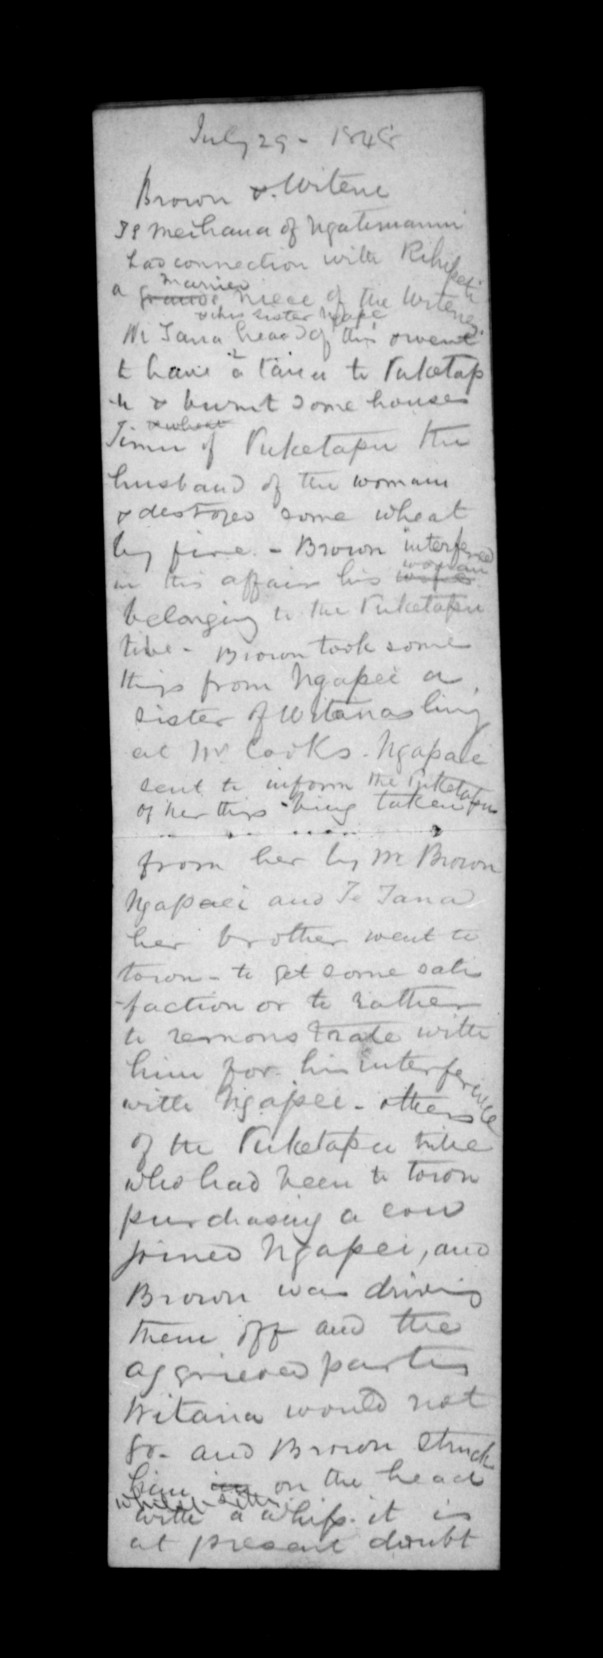 July 29 - 1848
Brown & Witene
Te Meihana of Ngatimaniu
had connection with Rihipeti
married
a grand niece of the Witenes
& his sister Ngapei
Wi Tana head of this & went
to have a taua to Puketap
-u & burnt some houses
& wheat
Timu of Puketapu the
husband of the woman
& destroyed some wheat
by fire. - Brown interfered
woman
in this affair his
belonging to the Puketapu
tribe - Brown took some
things from Ngapei a
sister of Witanas living
at Mr Cooks. Ngapaei
sent to inform the Puketapu
of her things being taken
from her by Mr Brown
Ngapaei and Te Tana
her brother went to
town - to get some satis
-faction or to rather
to remonstrate with
him for his interference
with Ngapei - others
of the Puketapu tribe
who had been to town
purchasing a cow
joined Ngapei, and
Brown was driving
them off and the
aggrieved parties
Witana would not
go - and Brown struck
him on the head
whilst sitting
with a whip. it is
at present doubt